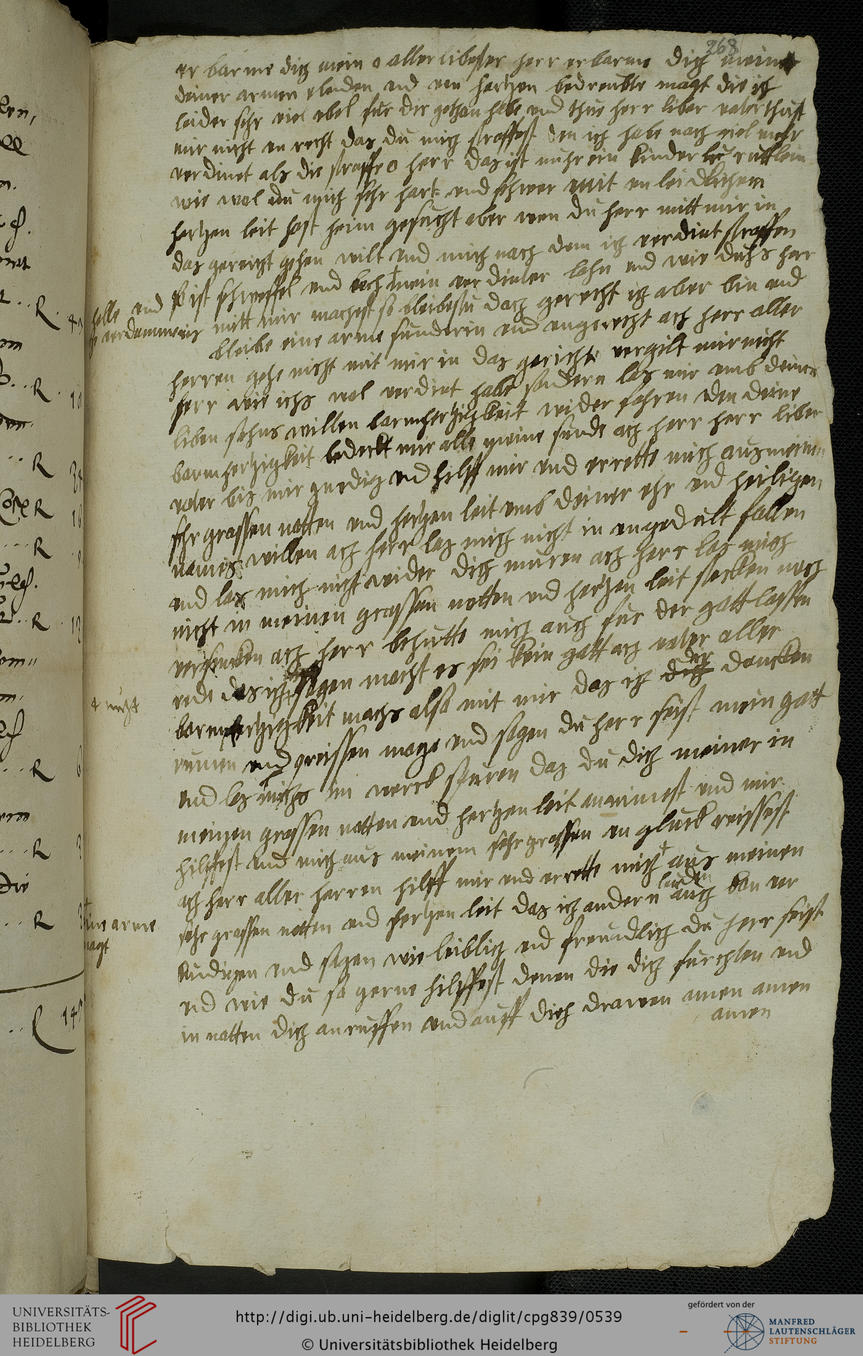 268
er barme dich mein o aller libester herr erbarme dich meiner
deiner armen elenden und von hertzen bedreubte magt die ich
leider sehr viel ubel fur der gethan habe und thue herr liber vater thust
mir nicht un recht das du mich straffest den ich habe noch viel mehr
verdinet als die straffe o herr das ist nuhr ein kinder ruttlein
wie wol du mich sehr hart und schwer mit un leidlichem
hertzen leit hast heim gesucht aber wen du herr mitt mir in
das gericht gehen wilt und mich nach dem ich verdint straffen
so ist schweffel und bech mein verdinter lohn und wie duhs herr
helle und
verdammenis
mitt mir machest so bleibestu doch gerecht ich aber bin und
bleibe eine arme sunderin und ungerecht ach herr aller
herren gehe nicht mit mir in das gerichte vergilt mir nicht
herr wie ichs wol verdint habe sundern las mir umb deines
liben sohns willen barmhertzigkeit wider fahren den deine
barmhertzigkeit bedeckt mir alle meine sunde ach herr herr liber
vater bis mir gnedig und hilff mir und errette mich aus meinen
sehr grossen notten und hertzen leit umb deiner ehr und heiligen
names willen ach herr las mich nicht in ungedult fallen
und las mich nicht wider dich muren ach herr las mich
nicht in meinen grossen notten und hertzen leit stecken noch
versincken ach herr behutte mich auch fur der gott lossen
rede das ich sagen mocht es sei kein gott ach vater aller
nicht
barmhertzigkeit machs also mit mir das ich dir dancken
rumen und preissen moge und sagen du herr seist mein gott
und las michs im werck spuren das du dich meiner in
meinen grossen notten und hertzen leit annimest und mir
hilffest und mich aus meinem sehr grossen un gluck reissest
ach herr aller herren hilff mir und errette mich aus meinen
eine arme
magt
sehr grossen notten und hertzen leit das ich andern leuten auch kan ver
kundigen und sagen wie leiblich und freundlich du herr seist
und wie du so gerne hilffest denen die dich furchten und
in notten dich an ruffen und auff dich drawen amen amen
amen
UNIVERSITÄTS-
BIBLIOTHEK
HEIDELBERG
http://digi.ub.uni-heidelberg.de/diglit/cpg839/0539
© Universitätsbibliothek Heidelberg
gefördert von der
MANFRED
LAUTENSCHLÄGER
STIFTUNG